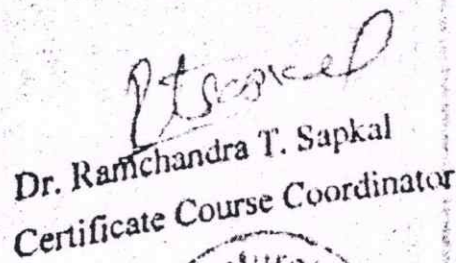 Dr. Ramchandra T. Sapkal
Certificate Course Coordinator